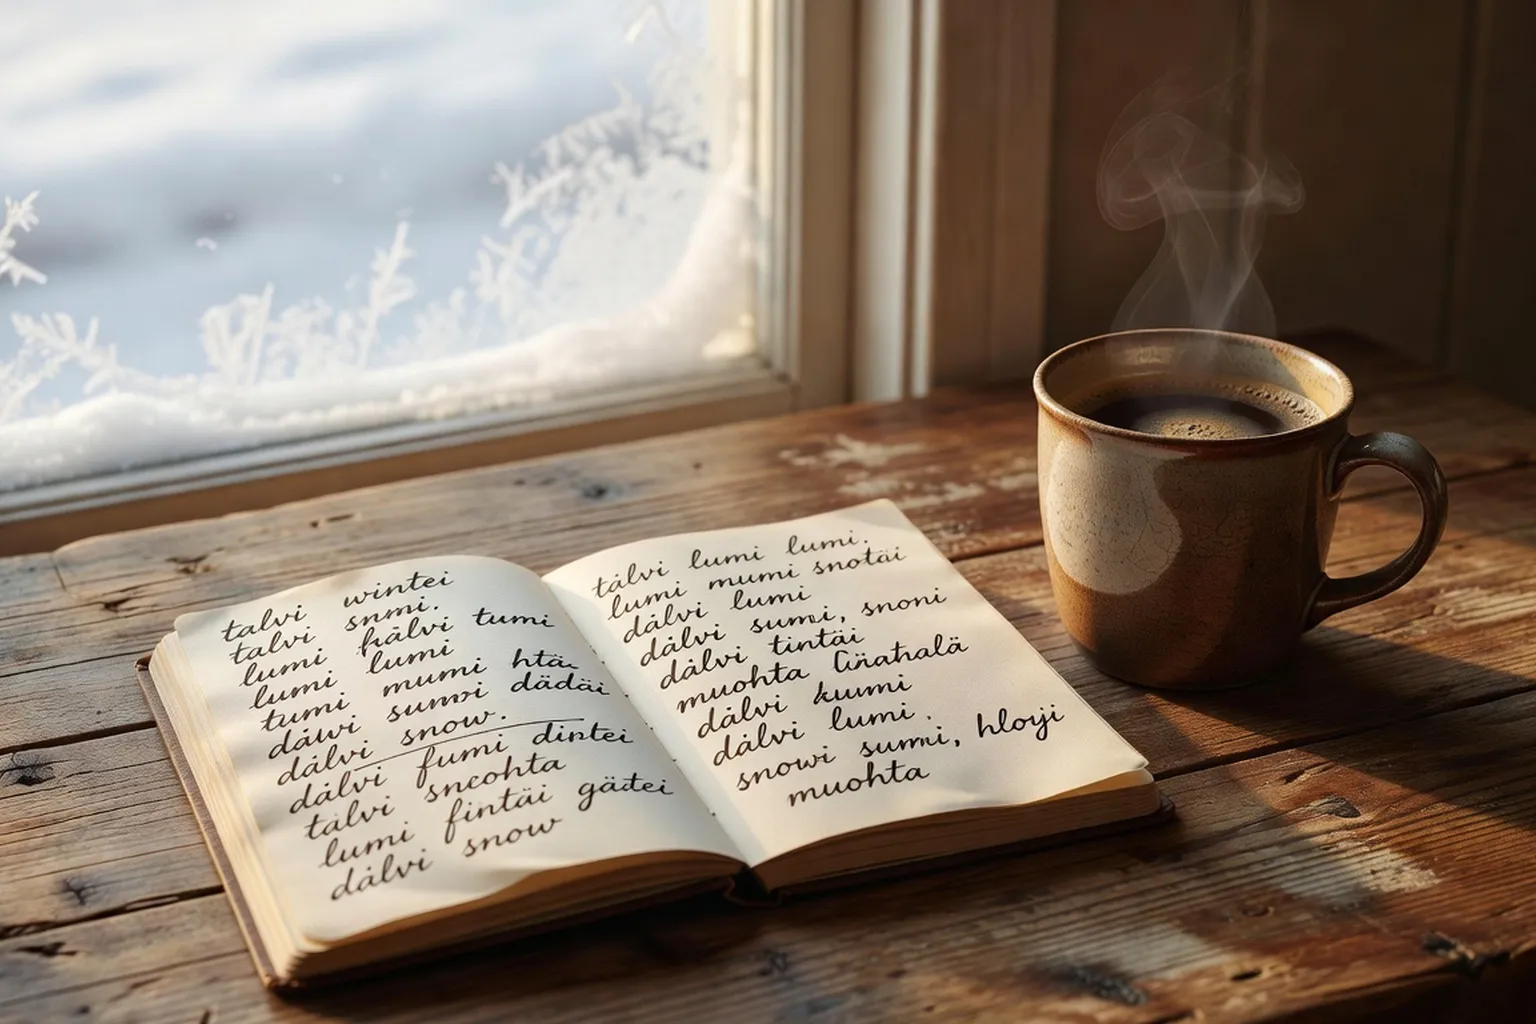 talvi wintei
talvi snmi.
lumi hälvi tumi
lumi lumi
tumi mumi htä
dålvi sumi dädäi
dálvi snow.
dálvi fumi dintei
tálvi sneohta
lumi fintäi gädtei
dálvi snow
tálvi lumi lumi.
lumi mumi snotäi
dálvi lumi
dálvi sumi, snoni
dálvi tintäi
muohta
dálvi kuumi
dálvi lumi.
snowi sumi, hloyji
muohta